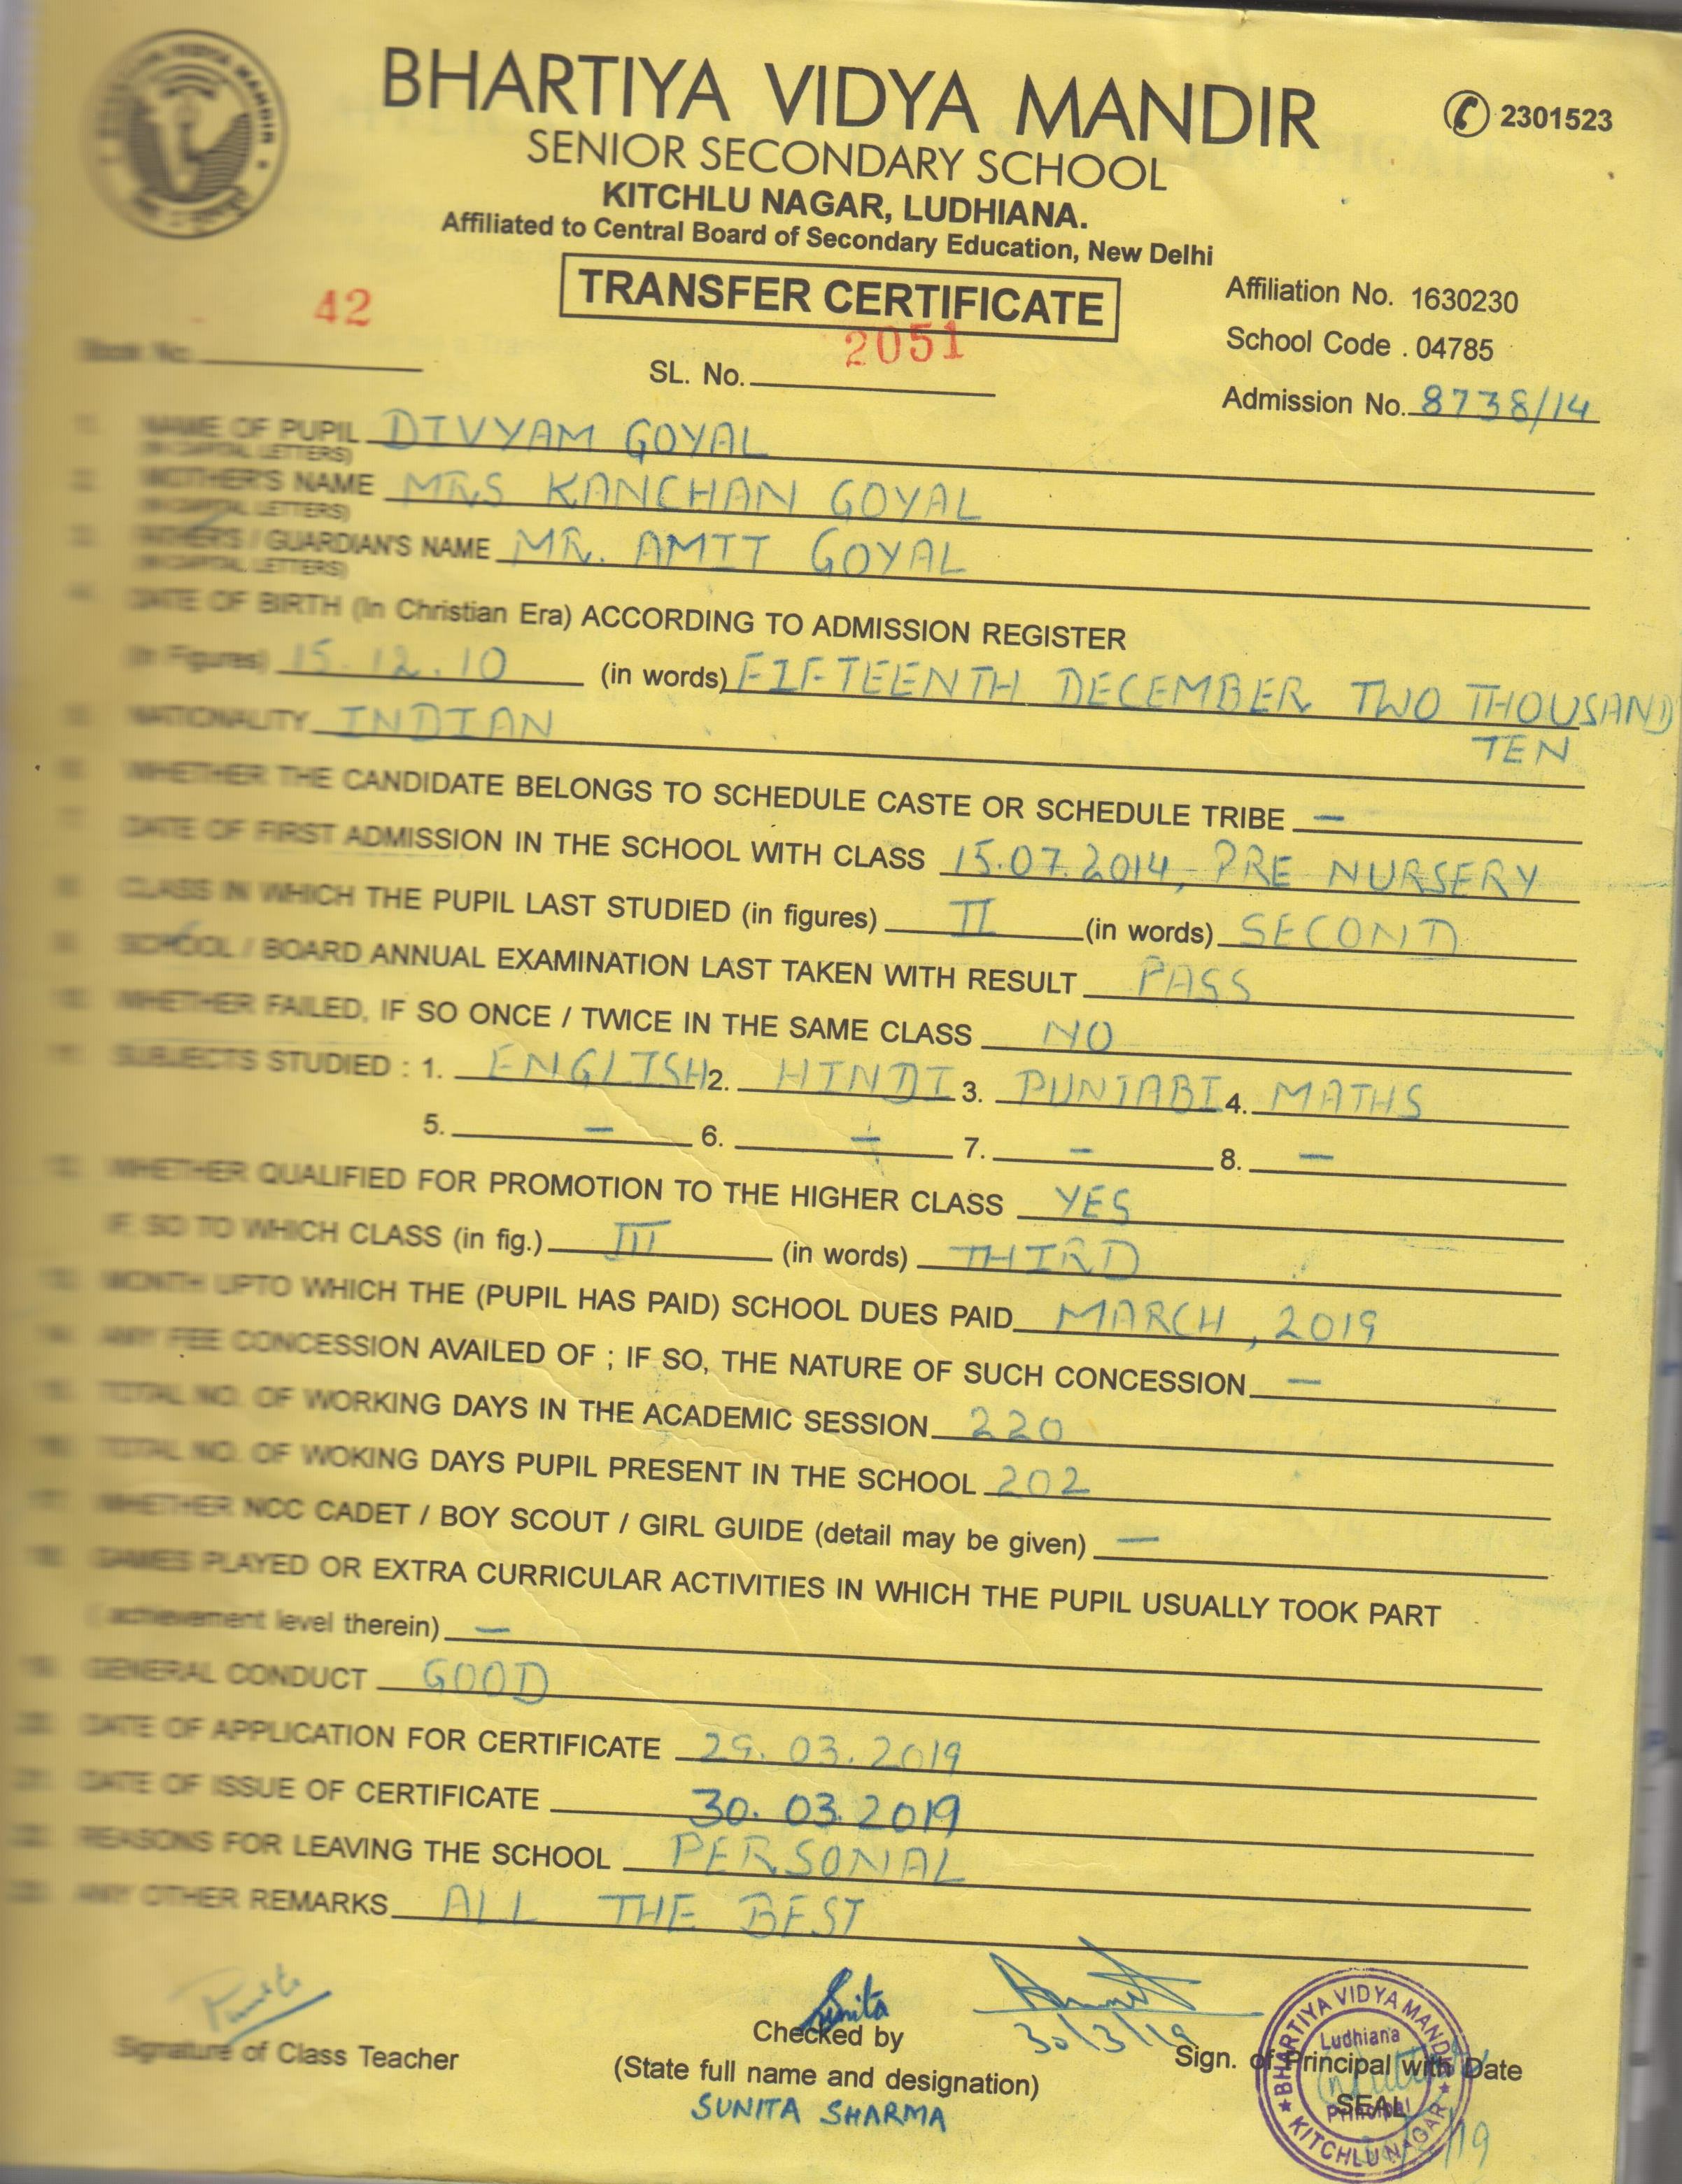 BHARTIYA VIDYA MANDIR
2301523
SENIOR SECONDARY SCHOOL
KITCHLU NAGAR, LUDHIANA.
Affiliated to Central Board of Secondary Education, New Delhi
TRANSFER CERTIFICATE
Affiliation No. 1630230
School Code . 04785
Book No. 42
SL. No. 2051
Admission No. 8738/14
1. NAME OF PUPIL DIVYAM GOYAL
(IN CAPITAL LETTERS)
2. MOTHER'S NAME MRS KANCHAN GOYAL
(IN CAPITAL LETTERS)
3. FATHER'S / GUARDIAN'S NAME MR. AMIT GOYAL
(IN CAPITAL LETTERS)
4. DATE OF BIRTH (In Christian Era) ACCORDING TO ADMISSION REGISTER
(In Figures) 15.12.10 (in words) FIFTEENTH DECEMBER TWO THOUSAND
TEN
5. NATIONALITY INDIAN
6. WHETHER THE CANDIDATE BELONGS TO SCHEDULE CASTE OR SCHEDULE TRIBE –
7. DATE OF FIRST ADMISSION IN THE SCHOOL WITH CLASS 15.07.2014, PRE NURSERY
8. CLASS IN WHICH THE PUPIL LAST STUDIED (in figures) II (in words) SECOND
9. SCHOOL / BOARD ANNUAL EXAMINATION LAST TAKEN WITH RESULT PASS
10. WHETHER FAILED, IF SO ONCE / TWICE IN THE SAME CLASS NO
11. SUBJECTS STUDIED : 1. ENGLISH 2. HINDI 3. PUNJABI 4. MATHS
5. – 6. – 7. – 8. –
12. WHETHER QUALIFIED FOR PROMOTION TO THE HIGHER CLASS YES
IF, SO TO WHICH CLASS (in fig.) III (in words) THIRD
13. MONTH UPTO WHICH THE (PUPIL HAS PAID) SCHOOL DUES PAID MARCH, 2019
14. ANY FEE CONCESSION AVAILED OF ; IF SO, THE NATURE OF SUCH CONCESSION –
15. TOTAL NO. OF WORKING DAYS IN THE ACADEMIC SESSION 220
16. TOTAL NO. OF WOKING DAYS PUPIL PRESENT IN THE SCHOOL 202
17. WHETHER NCC CADET / BOY SCOUT / GIRL GUIDE (detail may be given) –
18. GAMES PLAYED OR EXTRA CURRICULAR ACTIVITIES IN WHICH THE PUPIL USUALLY TOOK PART
( achievement level therein) –
19. GENERAL CONDUCT GOOD
20. DATE OF APPLICATION FOR CERTIFICATE 29.03.2019
21. DATE OF ISSUE OF CERTIFICATE 30.03.2019
22. REASONS FOR LEAVING THE SCHOOL PERSONAL
23. ANY OTHER REMARKS ALL THE BEST
Sunita
30/3/19
Signature of Class Teacher
Checked by
(State full name and designation)
SUNITA SHARMA
Sign. of Principal with Date
SEAL
BHARTIYA VIDYA MANDIR
Ludhiana
Principal
KITCHLU NAGAR